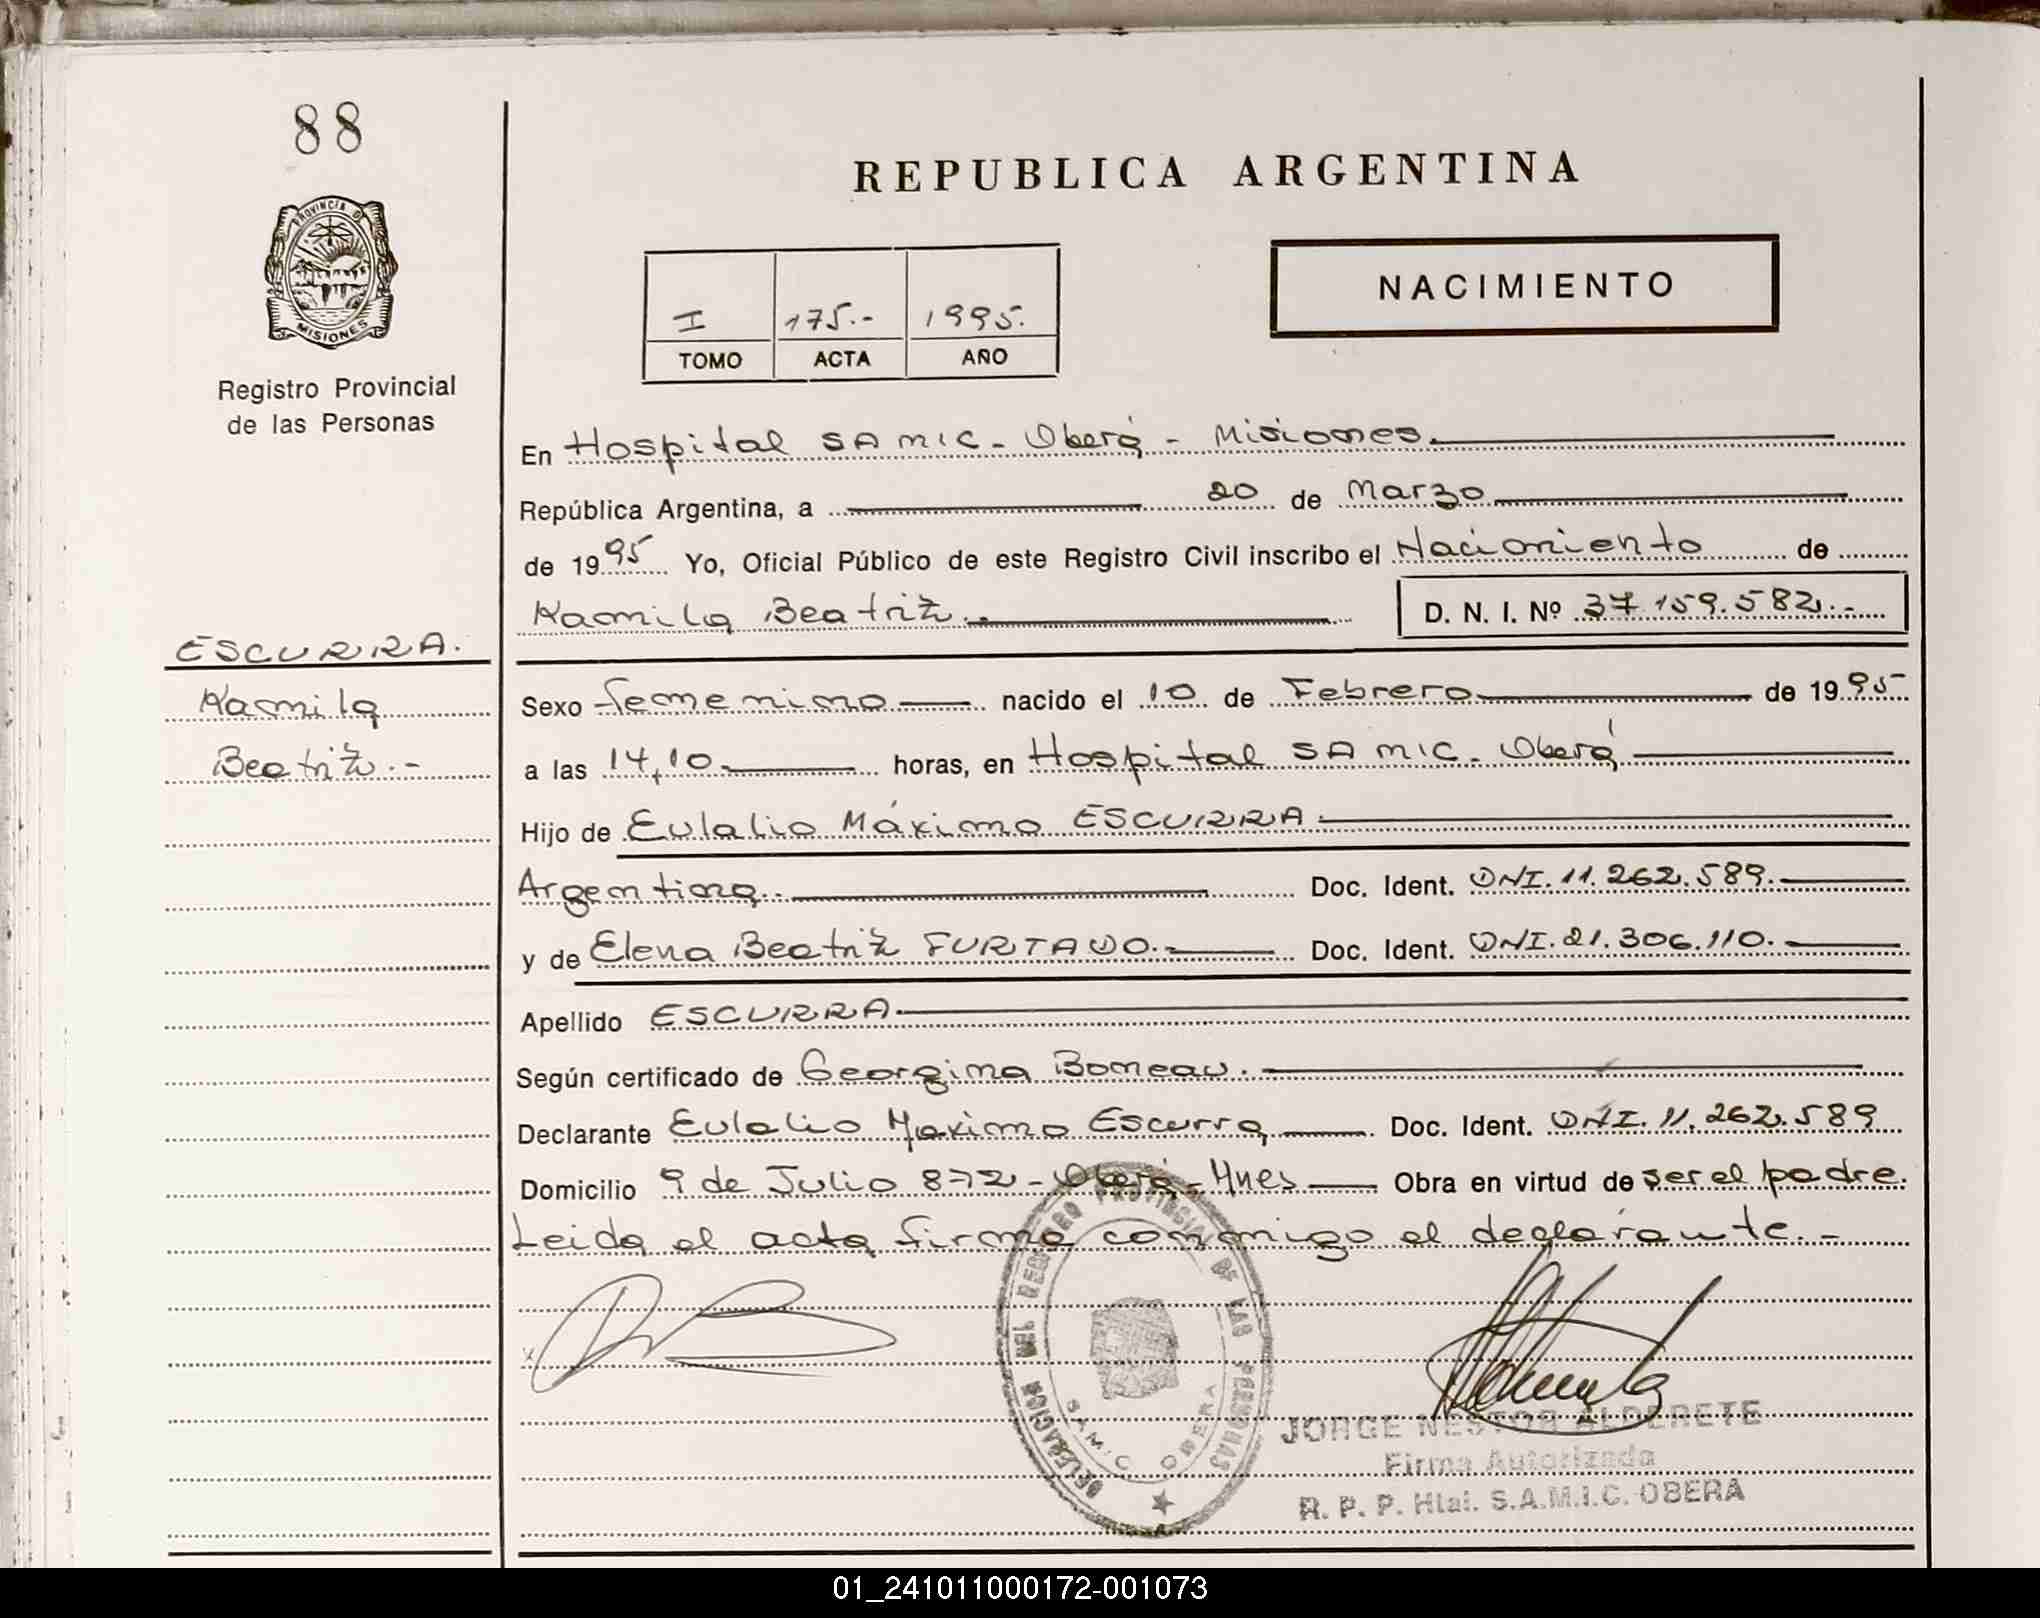 88
PROVINCIA DE
MISIONES
Registro Provincial
de las Personas
REPUBLICA ARGENTINA
NACIMIENTO
I 175.- 1995.
TOMO ACTA AÑO
En Hospital SAMIC - Oberá - Misiones.
República Argentina, a 20 de Marzo
de 1995 Yo, Oficial Público de este Registro Civil inscribo el Nacimiento de
Kamila Beatriz.
D. N. I. Nº 37.159.582.-
ESCURRA.
Kamila
Beatriz.-
Sexo femenino nacido el 10 de Febrero de 1995
a las 14,10 horas, en Hospital SAMIC - Oberá
Hijo de Eulalio Máximo ESCURRA
Argentina. Doc. Ident. DNI. 11.262.589.
y de Elena Beatriz FURTADO.- Doc. Ident. DNI. 21.306.110.
Apellido ESCURRA
Según certificado de Georgina Boneau.
Declarante Eulalio Maximo Escurra Doc. Ident. DNI. 11.262.589
Domicilio 9 de Julio 872 - Oberá - Mnes Obra en virtud de ser el padre.
Leida el acta firma conmigo el declarante.-
DELEGACION DEL REGISTRO PROVINCIAL DE LAS PERSONAS
S.A.M.I.C. OBERA
JORGE NESTOR ALDERETE
Firma Autorizada
R. P. P. Htal. S.A.M.I.C. OBERA
01_241011000172-001073